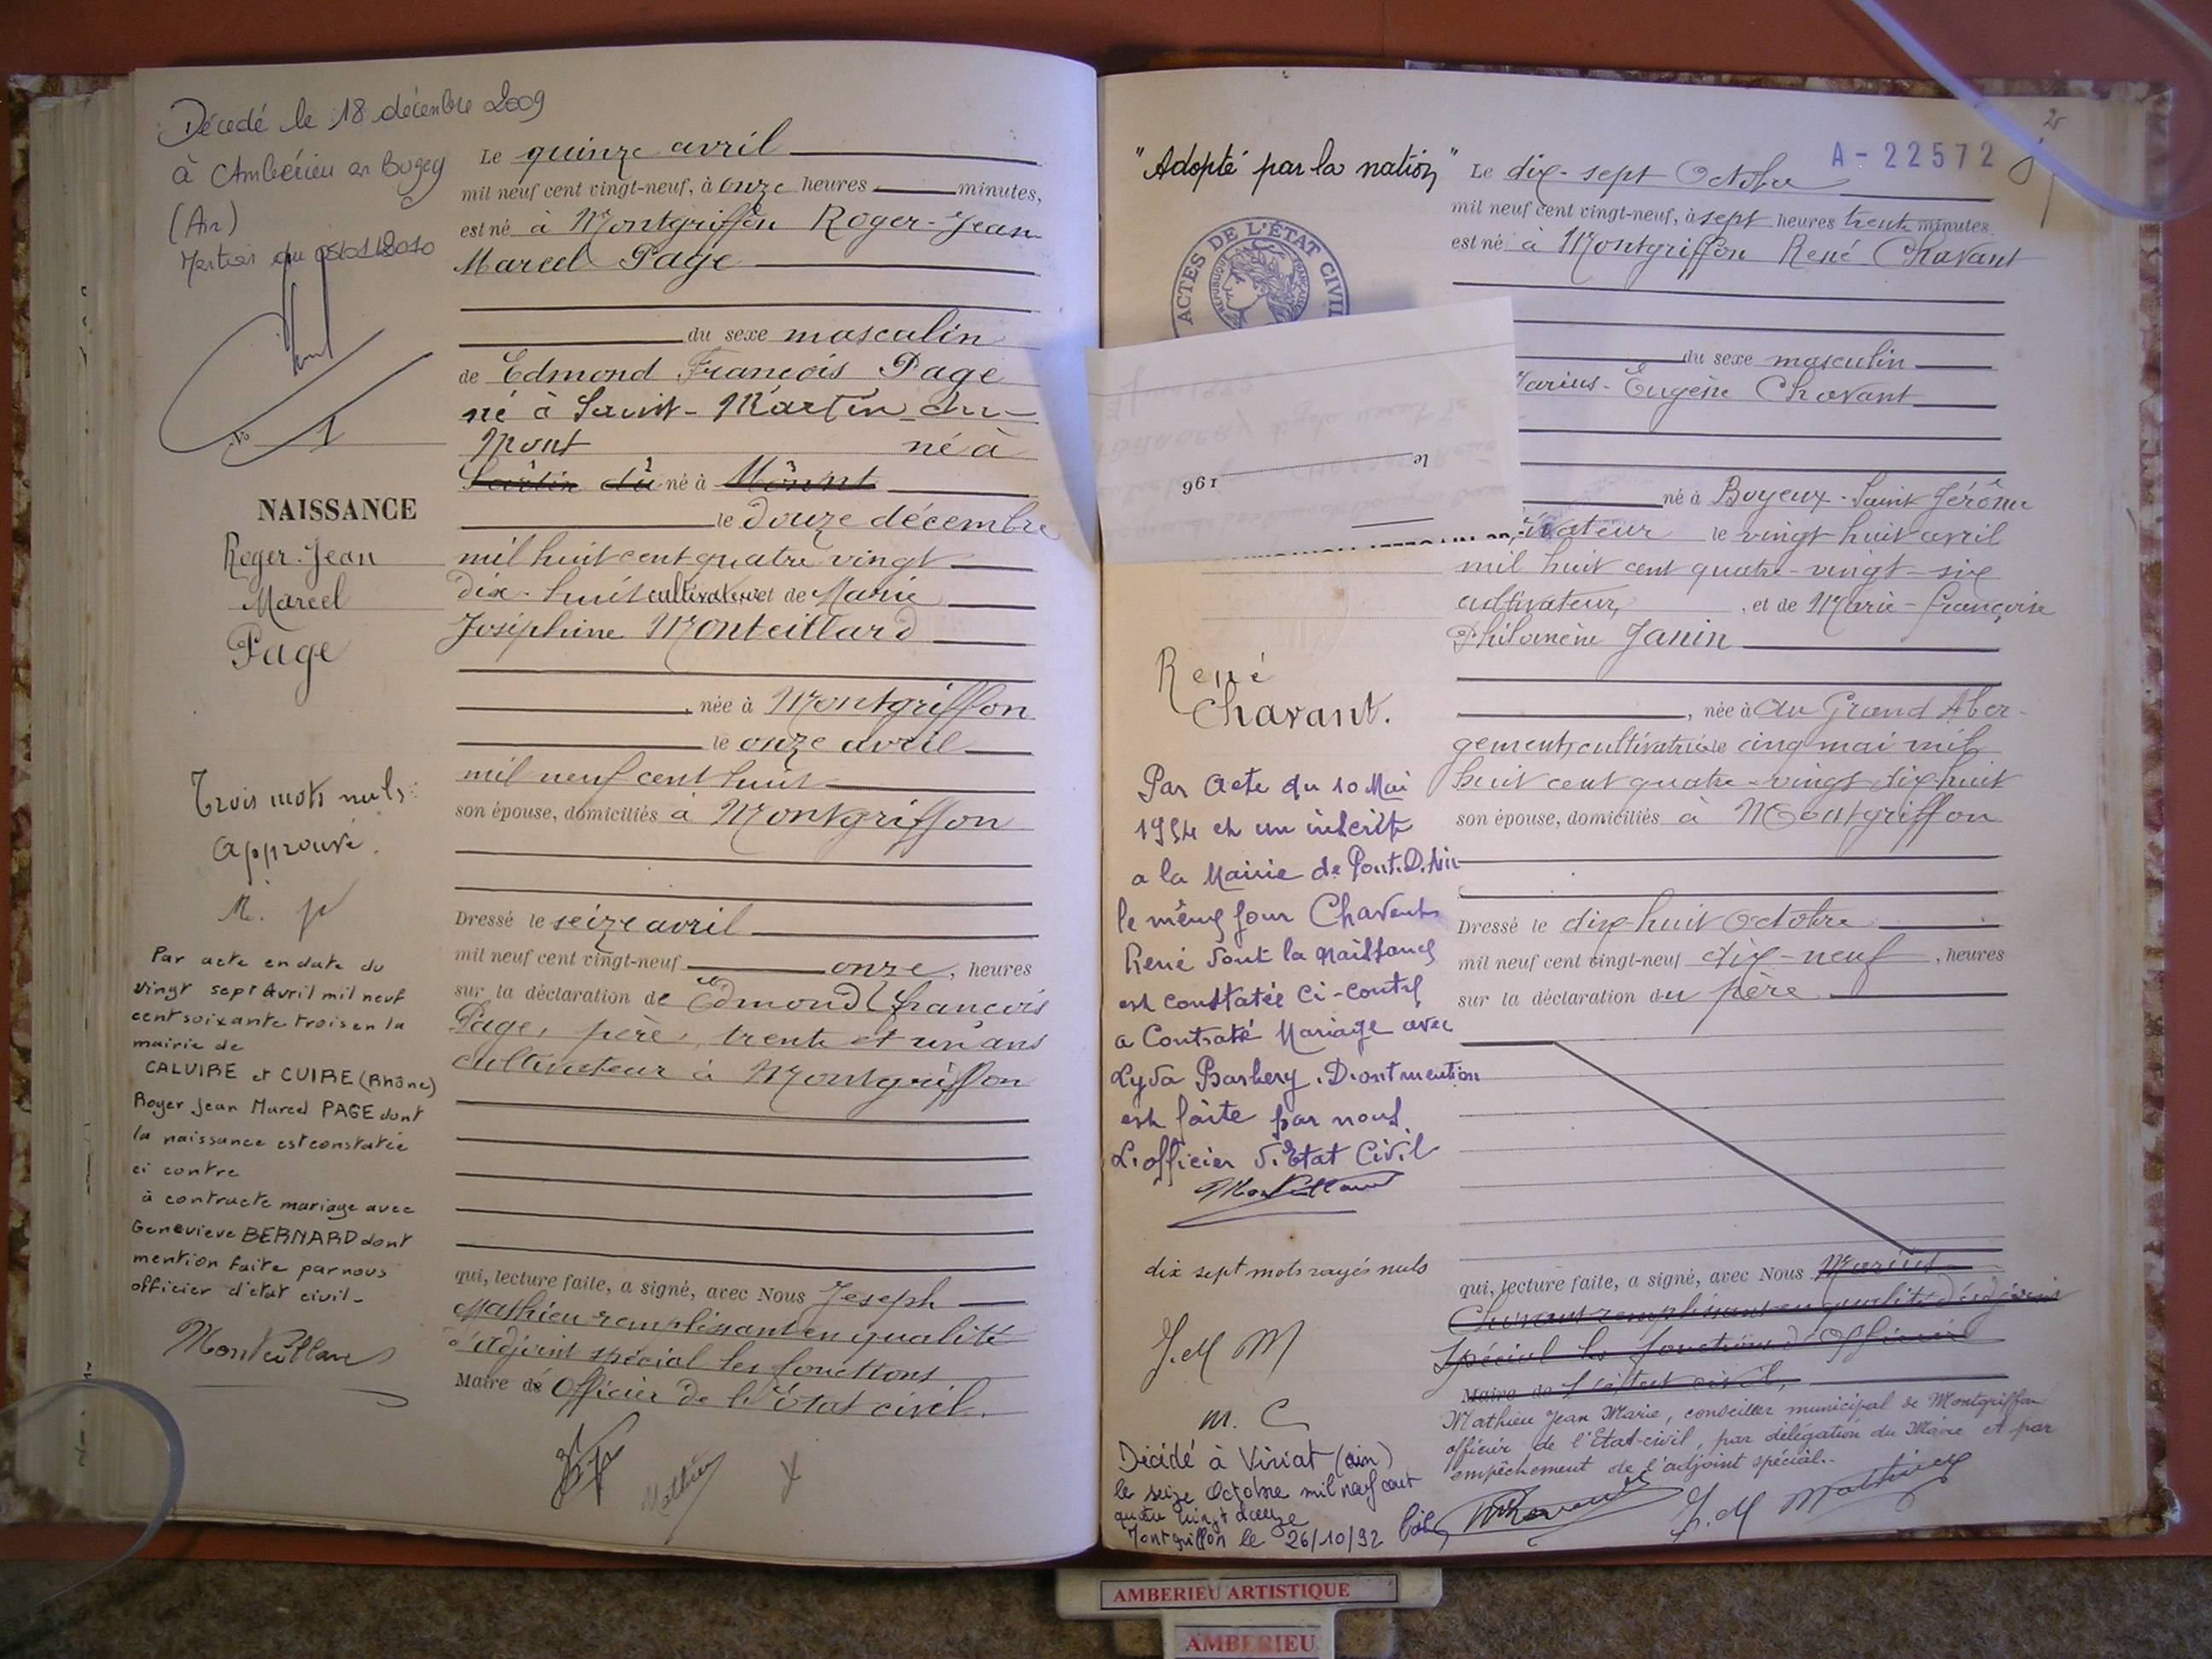 Décedé le 18 décembre 2009
à Ambérieu en Bugey
(Ain)
du 05/01/2010
No 1
NAISSANCE
Roger-Jean
Marcel
Page
Trois mots nuls
approuvé.
M. p
Par acte en date du
vingt sept Avril mil neuf
cent soixante trois en la
mairie de
CALUIRE et CUIRE (Rhône)
Roger Jean Marcel PAGE dont
la naissance est constatée
ci contre
à contracté mariage avec
Geneviève BERNARD dont
mention faite par nous
officier d'état civil-
Monteillard
Le quinze avril
mil neuf cent vingt-neuf, à onze heures minutes,
est né à Montgriffon Roger-Jean
Marcel Page
du sexe masculin
de Edmond François Page
né à Saint-Martin-du-
Mont né à
né à
le douze décembre
mil huit cent quatre vingt
dix-huit cultivateur et de Marie
Joséphine Monteillard
, née à Montgriffon
le onze avril
mil neuf cent huit
son épouse, domiciliés à Montgriffon
Dressé le seize avril
mil neuf cent vingt-neuf onze, heures
sur la déclaration de Edmond François
Page, père, trente et un ans
cultivateur à Montgriffon
qui, lecture faite, a signé, avec Nous Joseph
Mathieu remplissant en qualité
d'adjoint spécial les fonctions
Maire de Officier de l'état civil.
Mathieu
"Adopté par la nation"
ACTES DE L'ÉTAT CIVIL
RÉPUBLIQUE FRANÇAISE
le
196
René
Chavant.
Par acte du 10 Mai
1954 et un inscrit
a la Mairie de Pont.D.Ain
le même jour Chavant
René dont la naissance
est constatée ci-contre
a Contraté Mariage avec
Lyda Barbery. Dont mention
est faite par nous.
L'officier d'Etat Civil
Monteillard
dix sept mots rayés nuls
J.M M
M. C
Décédé à Viriat (ain)
le seize Octobre mil neuf cent
quatre vingt douze
Montgriffon le 26/10/92
A-22572
Le dix-sept Octobre
mil neuf cent vingt-neuf, à sept heures trente minutes
est né à Montgriffon René Chavant
du sexe masculin
Marius-Eugène Chavant
né à Boyeux-Saint Jérôme
le vingt huit avril
mil huit cent quatre-vingt-six
cultivateur, , et de Marie-Françoise
Philomène Janin
, née à au Grand Aber-
gement, cultivatrice le cinq mai mil
huit cent quatre-vingt-dix-huit
son épouse, domiciliés à Montgriffon
Dressé le dix-huit Octobre
mil neuf cent vingt-neuf dix-neuf, heures
sur la déclaration du père
qui, lecture faite, a signé, avec Nous Marius
Chavant remplissant en qualité d'adjoint
Spécial les fonctions d'Officier
Maire de l'état civil,
Mathieu Jean Marie, conseiller municipal de Montgriffon
officier de l'Etat-civil, par délégation du Maire et par
empêchement de l'adjoint spécial.
MChavant
J.M Mathieu
AMBERIEU ARTISTIQUE
AMBERIEU